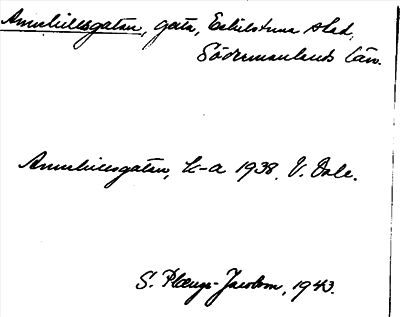 Annelundsgatan, gata, Eskilstuna stad,
Södermanlands län.
Annelundsgatan, k-a 1938. V. Dale.
S. Plœngs-Jacobson, 1943.